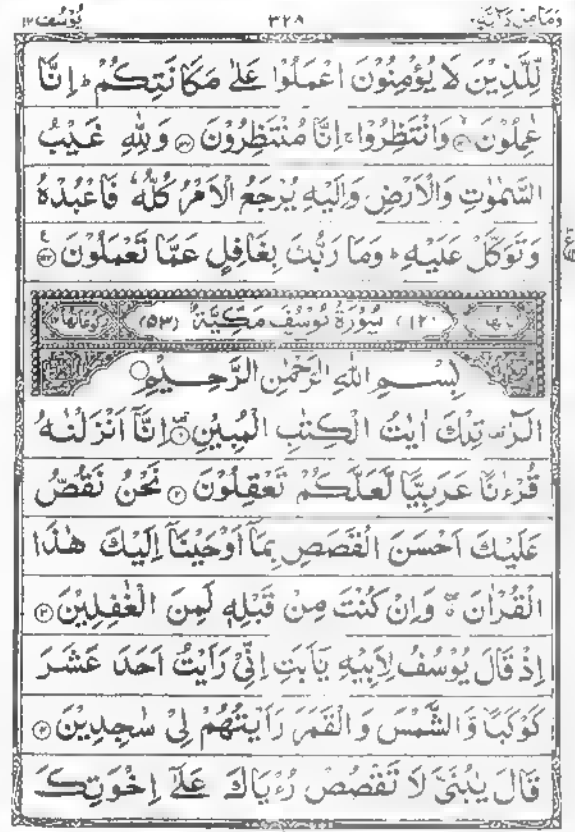 وَمَا مِنْ دَآبَّةٍ ١٢ ٣٢٨ يُوْسُف ١٢
لِّلَّذِيْنَ لَا يُؤْمِنُوْنَ اعْمَلُوْا عَلٰى مَكَانَتِكُمْ ؕ اِنَّا
عٰمِلُوْنَ ۙ وَانْتَظِرُوْا ۚ اِنَّا مُنْتَظِرُوْنَ ۝ وَلِلّٰهِ غَيْبُ
السَّمٰوٰتِ وَالْاَرْضِ وَاِلَيْهِ يُرْجَعُ الْاَمْرُ كُلُّهٗ فَاعْبُدْهُ
وَتَوَكَّلْ عَلَيْهِ ؕ وَمَا رَبُّكَ بِغَافِلٍ عَمَّا تَعْمَلُوْنَ ۝
(١٢) سُوْرَةُ يُوْسُفَ مَكِّيَّةٌ (٥٣)
بِسْمِ اللّٰهِ الرَّحْمٰنِ الرَّحِيْمِ
الٓرٰ ۚ تِلْكَ اٰيٰتُ الْكِتٰبِ الْمُبِيْنِ ۝١ اِنَّآ اَنْزَلْنٰهُ
قُرْءٰنًا عَرَبِيًّا لَّعَلَّكُمْ تَعْقِلُوْنَ ۝٢ نَحْنُ نَقُصُّ
عَلَيْكَ اَحْسَنَ الْقَصَصِ بِمَآ اَوْحَيْنَآ اِلَيْكَ هٰذَا
الْقُرْاٰنَ ۖ وَاِنْ كُنْتَ مِنْ قَبْلِهٖ لَمِنَ الْغٰفِلِيْنَ ۝٣
اِذْ قَالَ يُوْسُفُ لِاَبِيْهِ يٰٓاَبَتِ اِنِّيْ رَاَيْتُ اَحَدَ عَشَرَ
كَوْكَبًا وَّالشَّمْسَ وَالْقَمَرَ رَاَيْتُهُمْ لِيْ سٰجِدِيْنَ ۝٤
قَالَ يٰبُنَيَّ لَا تَقْصُصْ رُءْيَاكَ عَلٰٓى اِخْوَتِكَ